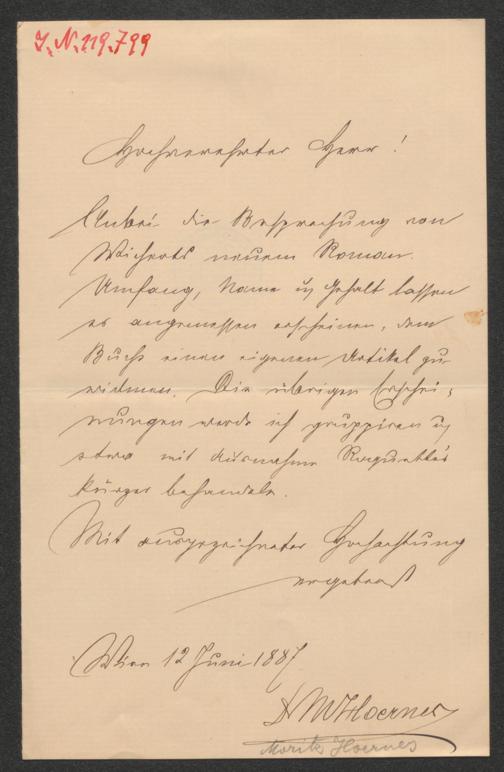 J. N. 119.799
Hochverehrter Herr!
Anbei die Besprechung von
Wicherts neuem Roman.
Umfang, Name u Gehalt lassen
es angemessen erscheinen, dem
Buch einen eigenen Artikel zu
widmen. Die übrigen Erschei-
nungen werde ich gruppiren u
etwa mit Ausnahme Roquette's
kürzer behandeln.
Mit ausgezeichneter Hochachtung
ergebenst
Wien 12 Juni 1887
Dr M Hoernes
Moritz Hoernes